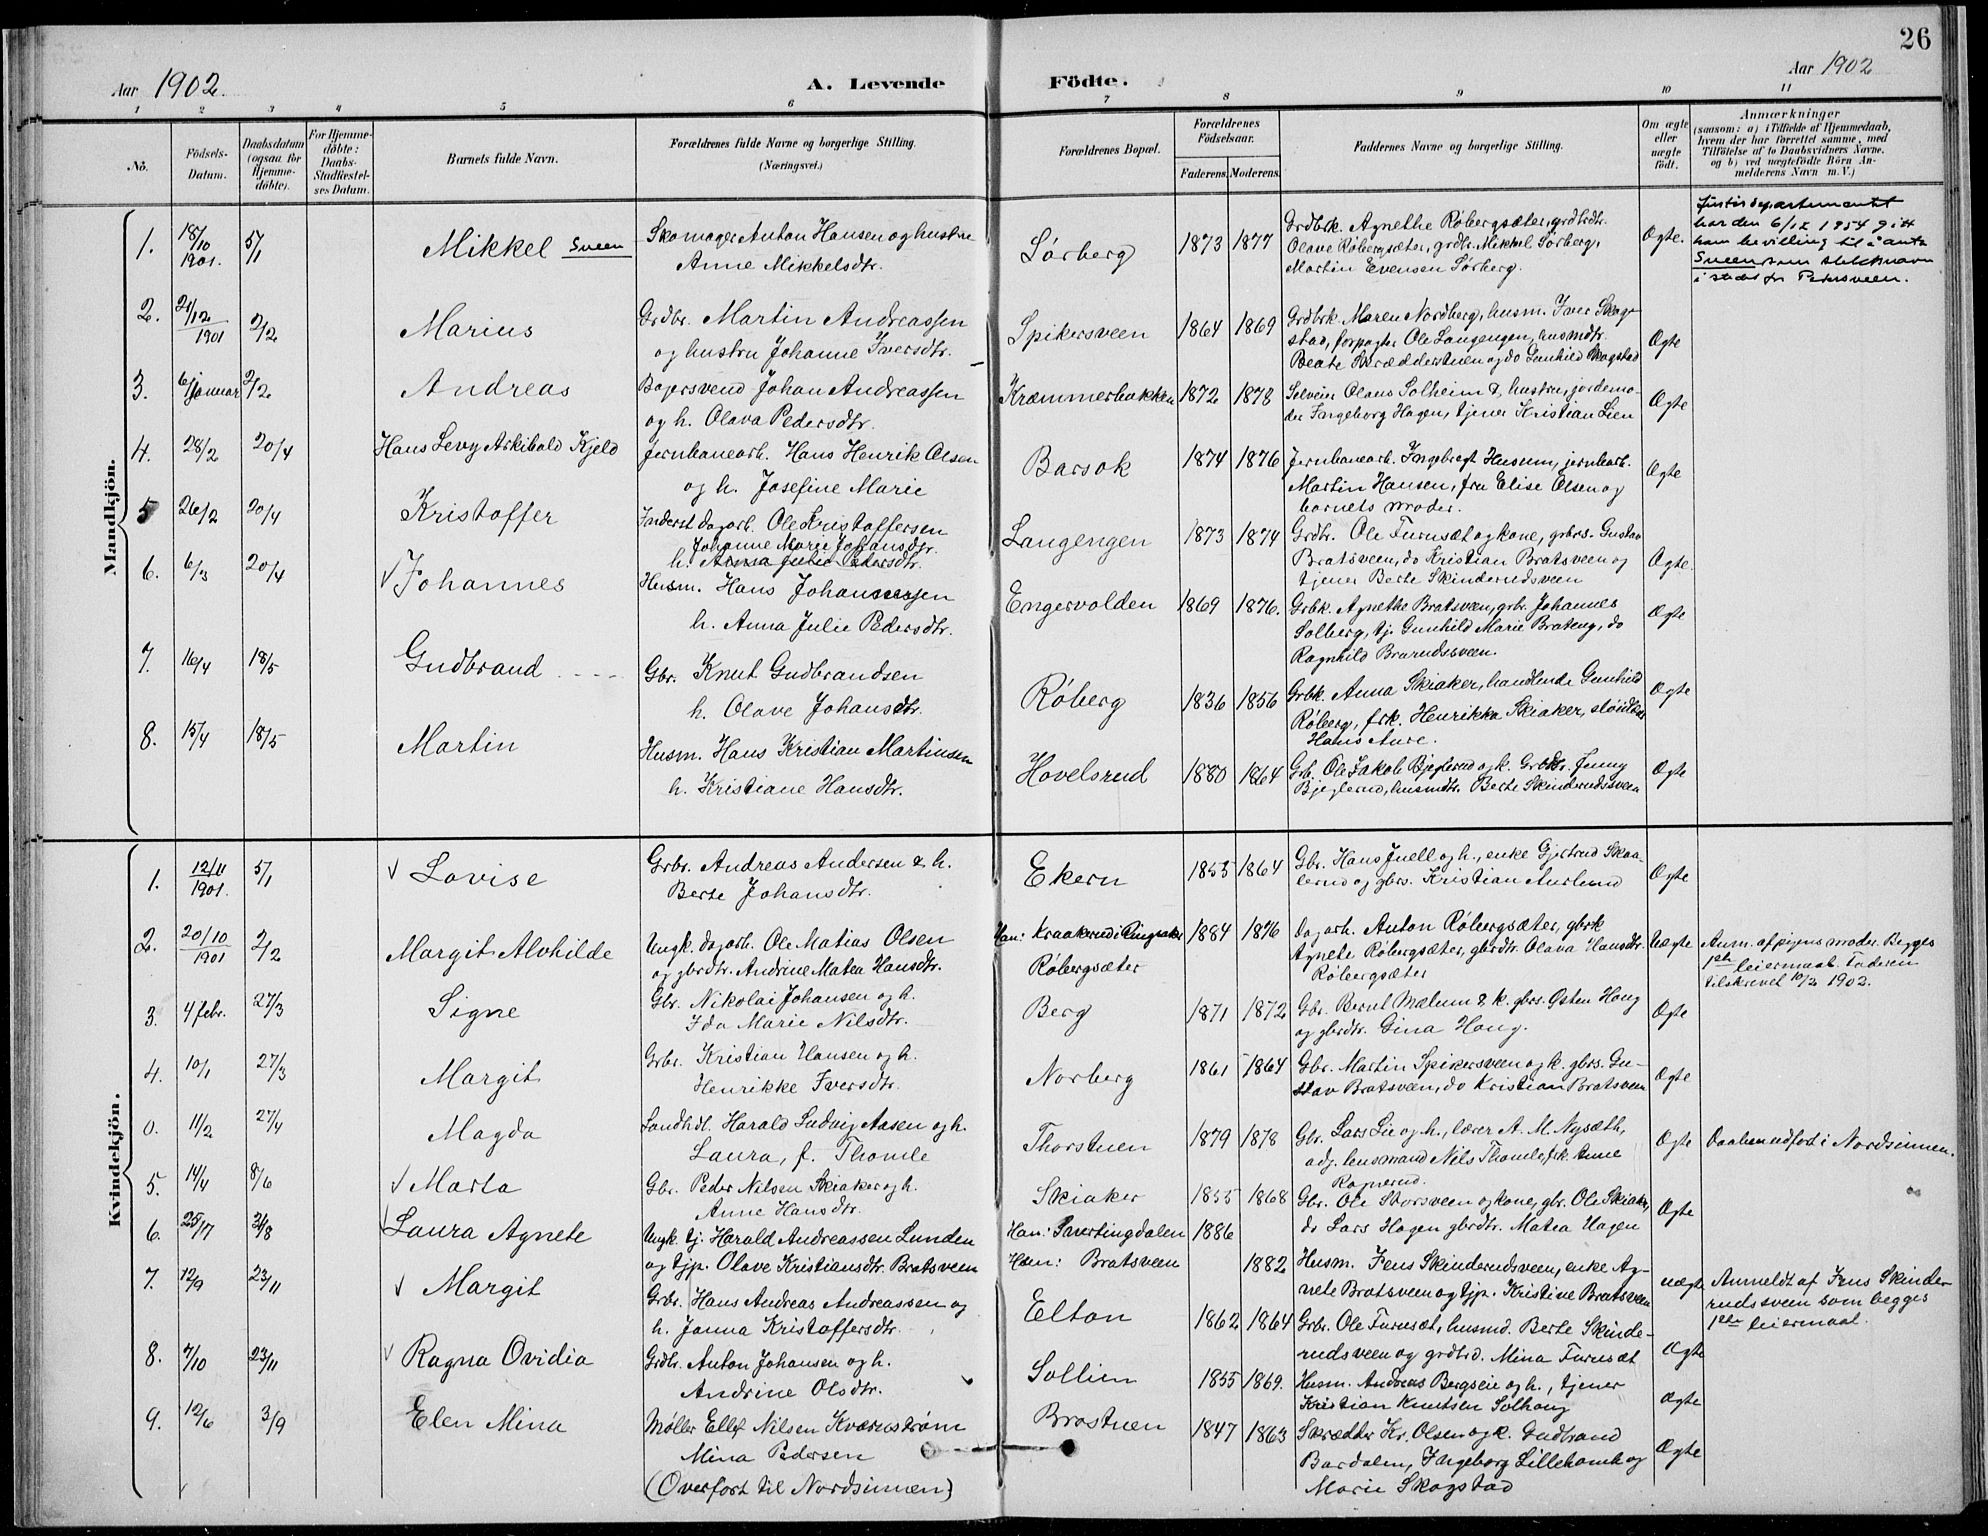 26
Aar 1902.
A. Levende
Födte.
Aar 1902
1 2 3 4 5 6 7 8 9 10 11
No.
Födsels-
Datum.
Daabsdatum
(ogsaa for
Hjemme-
döbte).
For Hjemme-
döbte:
Daabs-
Stadfæstel-
ses Datum.
Barnets fulde Navn.
Forældrenes fulde Navne og borgerlige Stilling.
(Næringsvei.)
Forældrenes Bopæl.
Forældrenes
Födselsaar.
Faderens. Moderens.
Faddernes Navne og borgerlige Stilling.
Om ægte
eller
uægte
födt.
Anmærkninger
(saasom: a) i Tilfælde af Hjemmedaab,
hvem der har forrettet samme, med
Tilföielse af to Daabsvidners Navne.
og b) ved uægtefödte Börn An-
melderens Navn m. V.)
Mandkjön.
1. 18/10 1901. 5/1
Mikkel Sveen
Skomager Anton Hansen og hustru
Anne Mikkelsdtr.
Sørberg 1873 1877
Grdbrk. Agnethe Røbergsæter, grdbrdtr.
Olave Røbergsæter, grdbr. Mikkel Sørberg,
Martin Evensen Sørberg.
Ægte.
Justisdepartementet
har den 6/ 1954 gitt
ham bevilling til å anta
Sveen som slektsnavn
i stedet for Pettersveen.
2. 21/12 1901 2/2
Marius
Grdbr. Martin Andreassen
og hustru Johanne Iversdtr.
Spikersveen 1864 1869
Grdbrk. Maren Nordberg, husm. Iver Skog-
stad, forpagter Ole Langengen, husmdtr.
Beate Skrædderstuen og do Gunhild Skogstad
Ægte
3. 6/januar 2/2
Andreas
Bagersvend Johan Andreassen
og h. Olava Pedersdtr.
Kræmmerbakken 1872 1878
Selveier Olaus Solheim & hustru, jordemo-
der Ingeborg Hagen, tjener Kristian Lien
Ægte
4. 28/2 20/4
Hans Levy Arkibald Kjeld
Jernbanearb. Hans Henrik Olsen
og h. Josefine Marie
Barsok 1874 1876
Jernbanearb. Ingebregt Husum, jernbarb.
Martin Hansen, fru Elise Olsen og
barnets moder.
Ægte
5 26/2 20/4
Kristoffer
Inderst dagarb. Ole Kristoffersen
Johanne Marie Johansdtr.
h. Anna Julie Pedersdtr.
Langengen 1873 1874
Grdbr. Ole Furusæt og kone, grbrs. Gustav
Bratsveen, do Kristian Bratsveen og
tjener Berte Skinderudsveen
Ægte.
6. 6/3 20/4
√ Johannes
Husm. Hans Johannessen
h. Anna Julie Pedersdtr.
Engervolden 1869 1876.
Grbk. Agnethe Bratsveen, grbr. Johannes
Solberg, tj. Gunhild Marie Brateng, do
Ragnhild Brarudssveen.
Ægte
7. 16/4 18/5
Gudbrand
Gbr. Knut Gudbrandsen
h. Olave Johansdtr.
Røberg 1836 1856
Grbk. Anna Skiaker, handlende Gunhild
Røberg, frk. Henrikka Skiaker,
Hans Aure.
Ægte
8. 15/4 18/5
Martin
Husm. Hans Kristian Martinsen
h. Kristiane Hansdtr.
Hovelsrud 1880 1864
Grb. Ole Jakob Bjeglerud og k. Grbdtr. Jenny
Bjeglerud, husmdtr. Berte Skinderudssveen
Ægte
Kvindekjön.
1. 12/11 1901. 5/1
√ Lovise
Grbr. Andreas Andersen & h.
Berte Johansdtr.
Ekern 1855 1864
Gbr. Hans Juell og h., enke Gjertrud Skaa-
lerud og gbrs. Kristian Aurlund
Ægte
2. 20/10 1901 2/2
Margit Alvhilde
Ungk. dagarb. Ole Matias Olsen
og gbrdtr. Andrine Matea Hansdtr.
Han: Kraakerud i Ringsaker 1884 1876
Røbergsæter
Dagarb. Anton Røbergsæter, gbrk
Agnete Røbergsæter, gbrdtr. Olava Hansdtr.
Røbergsæter
Uægte
Anm. af pigens moder. Begges
1ste leiermaal. Faderen
tilskrevet 10/2 1902.
3. 4 febr. 27/3
Signe
Gbr. Nikolai Johansen og h.
Ida Marie Nilsdtr.
Berg 1871 1872
Gbr. Bernt Mælum & k. gbrs. Østen Haug
og gbrdtr. Gina Haug.
Ægte
4. 10/1 27/3
Margit
Grbr. Kristian Hansen og h.
Henrikke Iversdtr.
Norberg 1861 1864
Gbr. Martin Spikersveen og k. gbrs. Gu-
stav Bratsveen, do Kristian Bratsveen
Ægte
0. 11/2 27/4
Magda
Landhdl. Harald Ludvig Aasen og h.
Laura, f. Thomle
Thorstuen 1879 1878
Gbr. Lars Lie og h., lærer A. M. Nysæth,
adj. lensmand Nils Thomle, frk. Anne
Rognerud.
Ægte
Daaben udført i Nordsinnen.
5. 14/4 8/6
√ Marta
Gbr. Peder Nilsen Skiaker og h.
Anne Hansdtr.
Skiaker 1855 1868
Gbr. Ole Storsveen og kone, gbr. Ole Skiaker,
do Lars Hagen gbrdtr. Matea Hagen
Ægte
6. 25/7 3/8
√ Laura Agnete
Ungk. tj. Harald Andreassen Lunden
og tjp. Olave Kristiansdtr. Bratsveen
Han: Snertingdalen 1886
Hun: Bratsveen 1882
Husm. Jens Skinderudsveen, enke Ag-
nete Bratsveen og tjp. Kristine Bratsveen
uægte
Anmeldt af Jens Skinde-
rudssveen som begges
1ste leiermaal.
7. 12/9 23/11
√ Margit
Grbr. Hans Andreas Andreassen og
h. Janna Kristoffersdtr.
Elton 1862 1864
Grbr. Ole Furusæt, husmd. Berte Skinde-
rudsveen og grdbrd. Mina Furusæt
Ægte
8. 7/10 23/11
√ Ragna Ovidia
Grdbr. Anton Johansen og h.
Andrine Olsdtr.
Sollien 1855 1869.
Husm. Andreas Bergseie og h., tjener
Kristian Knutsen Solhaug
Ægte
9. 12/6 3/9
Elen Mina
Møller Ellef Nilsen Kværnstrøm
Mina Pedersen
(Overført til Nordsinnen)
Brostuen 1847 1863
Skrædder Kr. Olsen og k. Gudbrand
Bardalen, Ingeborg Lillehomb og
Marie Skogstad
Ægte